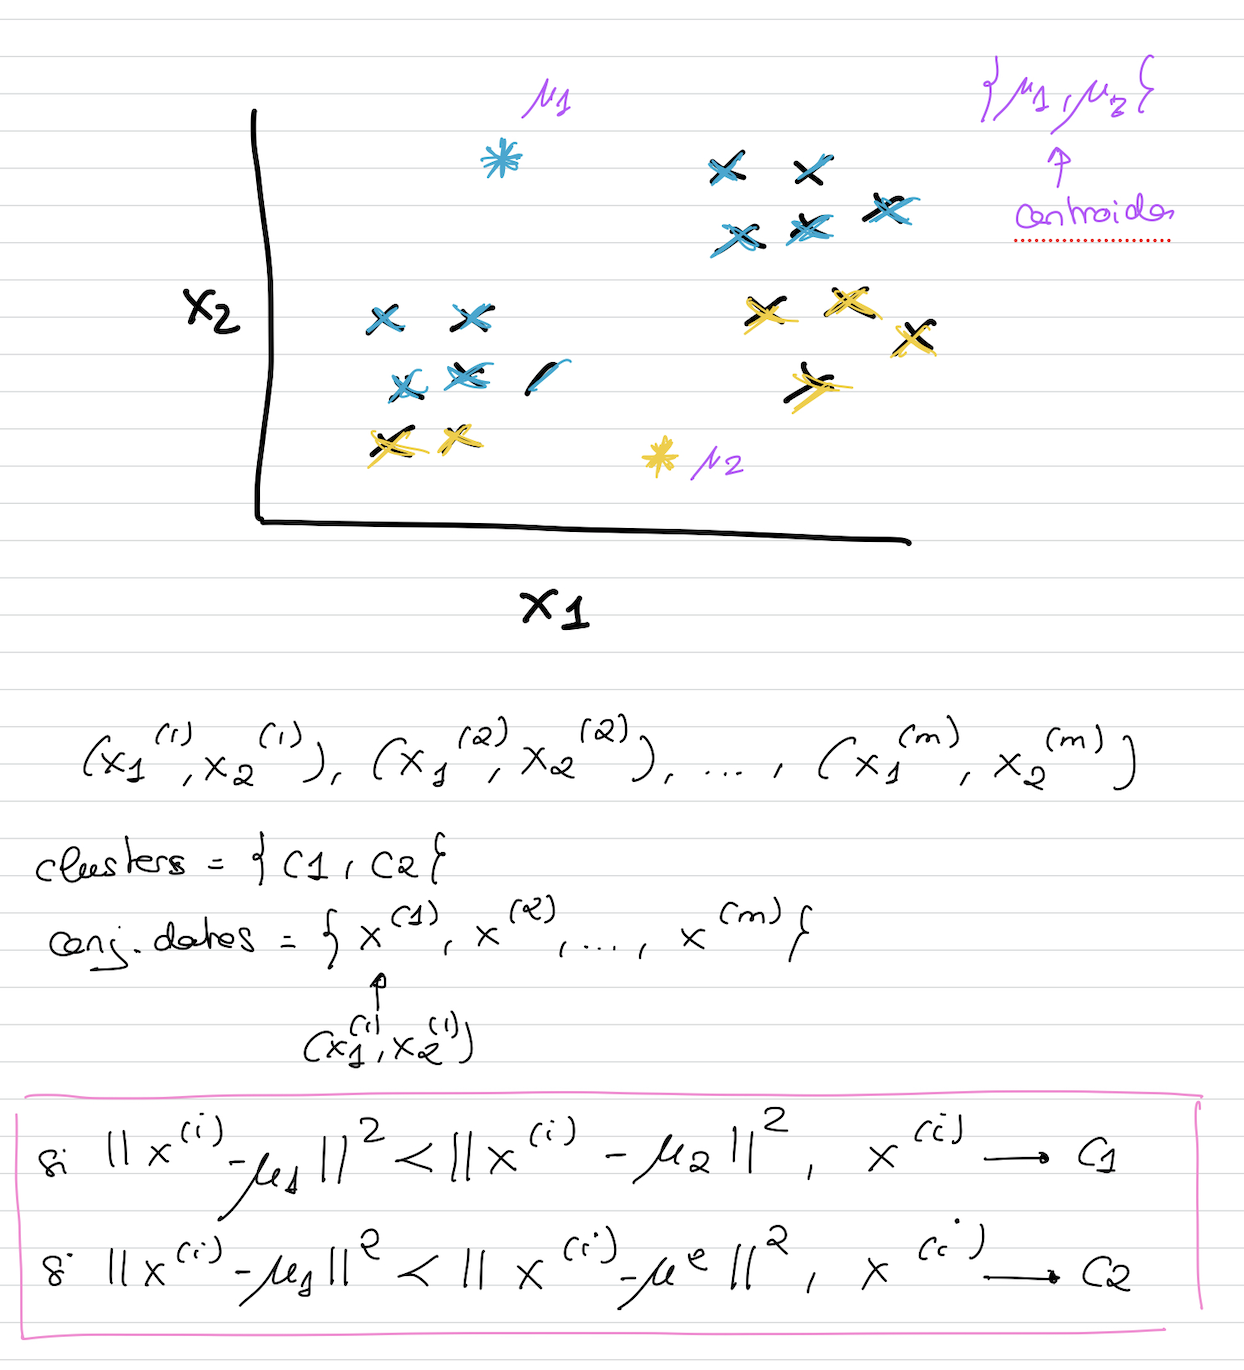 μ1
{μ1, μ2}
centroides
x2
μ2
x1
(x1^(1), x2^(1)), (x1^(2), x2^(2)), ..., (x1^(m), x2^(m))
clusters = {C1, C2}
conj. datos = {x^(1), x^(2), ..., x^(m)}
(x1^(1), x2^(1))
si ||x^(i) - μ1||^2 < ||x^(i) - μ2||^2, x^(i) → C1
si ||x^(i) - μ1||^2 < ||x^(i) - μ^2||^2, x^(i) → C2